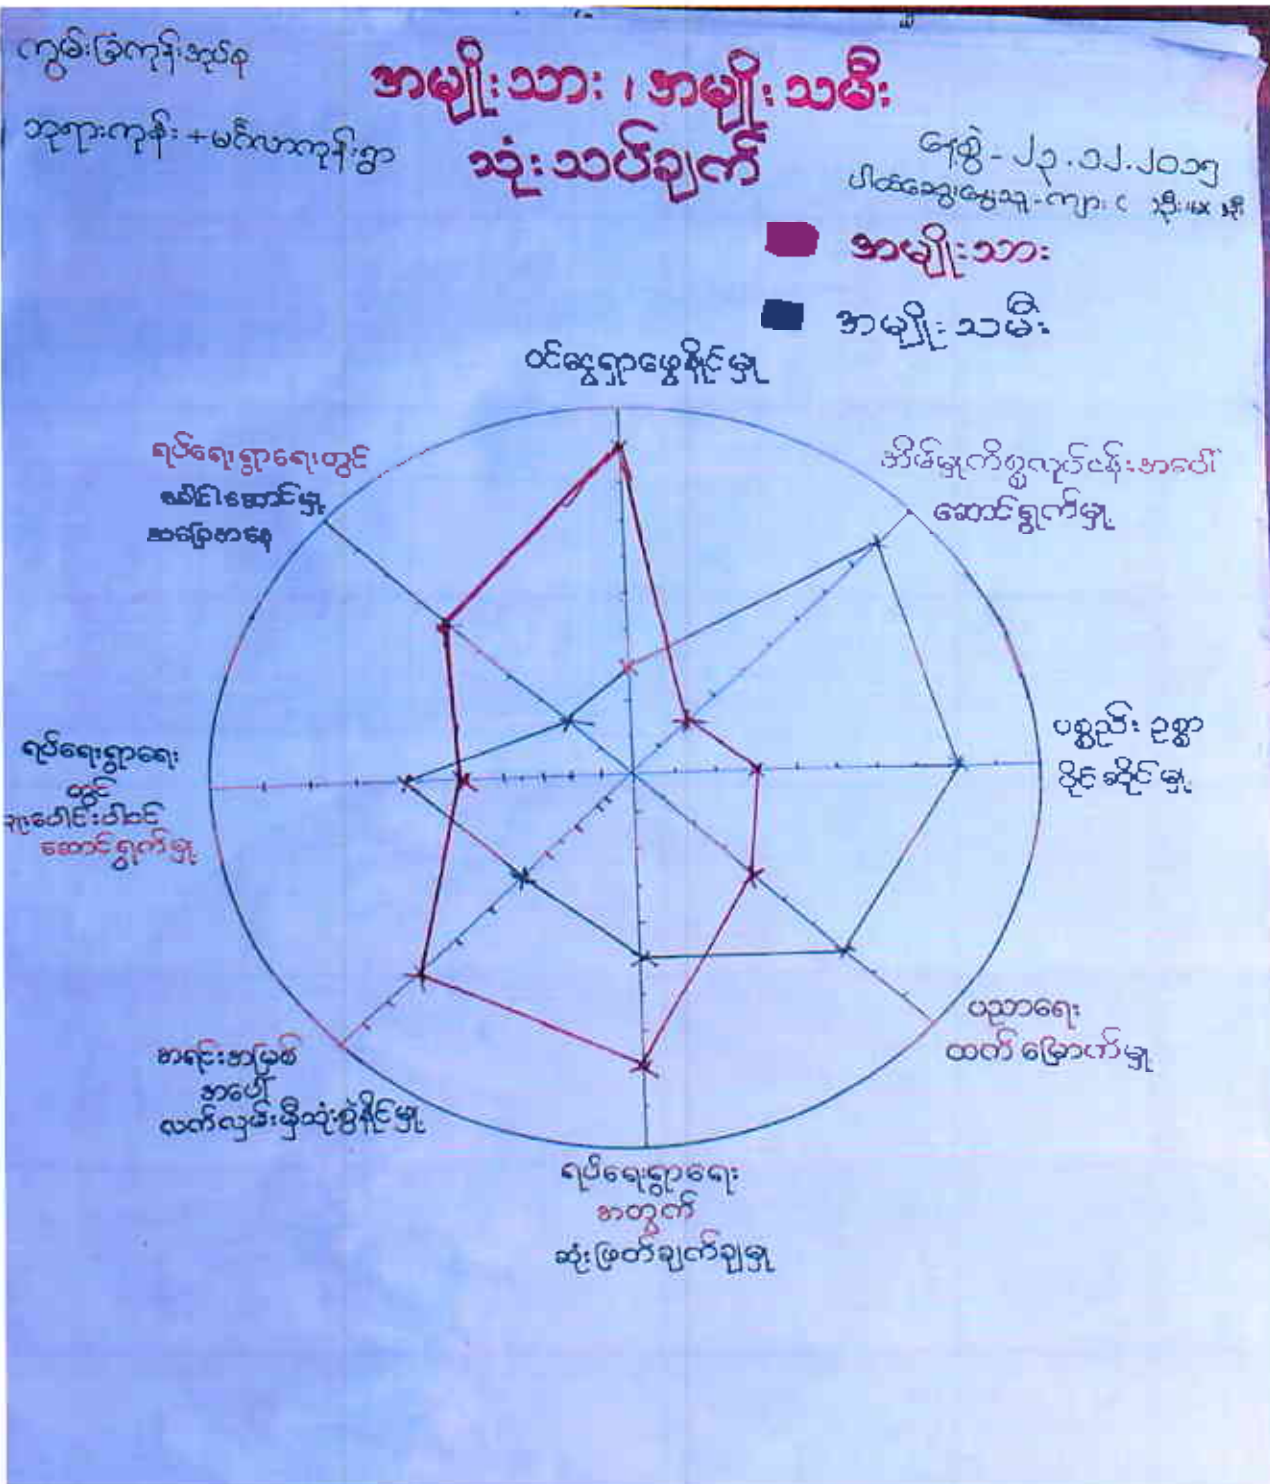 ကွမ်းခြံကုန်းအုပ်စု
ဘုရားကုန်း+မင်္ဂလာကုန်းရွာ
အမျိုးသား ၊ အမျိုးသမီး
သုံးသပ်ချက်
နေ့စွဲ - ၂၃.၁၂.၂၀၁၅
အမျိုးသား
အမျိုးသမီး
ဝင်ငွေရှာဖွေနိုင်မှု
အိမ်မှုကိစ္စလုပ်ငန်းအပေါ်
ဆောင်ရွက်မှု
ပစ္စည်းဥစ္စာ
ပိုင်ဆိုင်မှု
ပညာရေး
ထက်မြောက်မှု
ရပ်ရေးရွာရေး
အတွက်
ဆုံးဖြတ်ချက်ချမှု
အရင်းအမြစ်
အပေါ်
လက်လှမ်းမှီသုံးစွဲနိုင်မှု
ရပ်ရေးရွာရေး
တွင်
ပူးပေါင်းပါဝင်
ဆောင်ရွက်မှု
ရပ်ရေးရွာရေးတွင်
ခေါင်းဆောင်မှု
အခြေအနေ